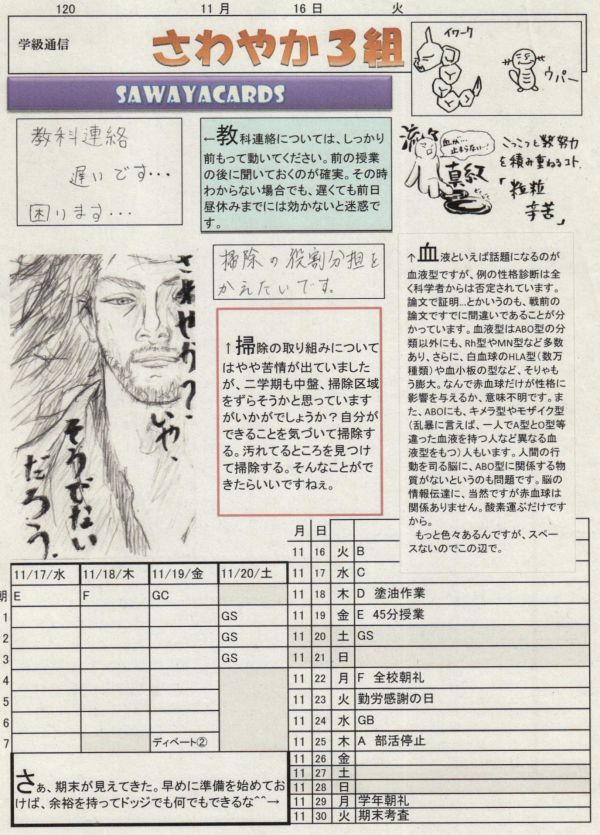 120 11月 16日 火
学級通信
さわやか3組
イワーク
ウパー
SAWAYACARDS
教科連絡
遅いです…
困ります…
←教科連絡については、しっかり
前もって動いてください。前の授業
の後に聞いておくのが確実。その時
わからない場合でも、遅くても前日
昼休みまでには効かないと迷惑で
す。
流々
血が…
止まらない…!
真紋
こつこつと努力
を積み重ねるコト
「粒粒
辛苦」
掃除の役割分担を
かえたいです。
さわやか?
いや、
そうでない
だろう。
↑掃除の取り組みについて
はやや苦情が出ていました
が、二学期も中盤、掃除区域
をずらそうかと思っています
がいかがでしょうか?自分が
できることを気づいて掃除す
る。汚れてるところを見つけ
て掃除する。そんなことがで
きたらいいですねぇ。
↑血液といえば話題になるのが
血液型ですが、例の性格診断は全
く科学者からは否定されています。
論文で証明…とかいうのも、戦前の
論文ですでに間違いであることが分
かっています。血液型はABO型の分
類以外にも、Rh型やMN型など多数
あり、さらに、白血球のHLA型(数万
種類)や血小板の型など、そりゃも
う膨大。なんで赤血球だけが性格に
影響を与えるか、意味不明です。ま
た、ABOにも、キメラ型やモザイク型
(乱暴に言えば、一人でA型とO型等
違った血液を持つ人など異なる血
液型をもつ)人もいます。人間の行
動を司る脳に、ABO型に関係する物
質がないというのも問題です。脳の
情報伝達に、当然ですが赤血球は
関係ありません。酸素運ぶだけです
から。
もっと色々あるんですが、スペー
スないのでこの辺で。
11/17/水 11/18/木 11/19/金 11/20/土
朝 E F GC
1 GS
2 GS
3 GS
4
5
6
7 ディベート②
さぁ、期末が見えてきた。早めに準備を始めてお
けば、余裕を持ってドッジでも何でもできるな^^→
月 日
11 16 火 B
11 17 水 C
11 18 木 D 塗油作業
11 19 金 E 45分授業
11 20 土 GS
11 21 日
11 22 月 F 全校朝礼
11 23 火 勤労感謝の日
11 24 水 GB
11 25 木 A 部活停止
11 26 金
11 27 土
11 28 日
11 29 月 学年朝礼
11 30 火 期末考査